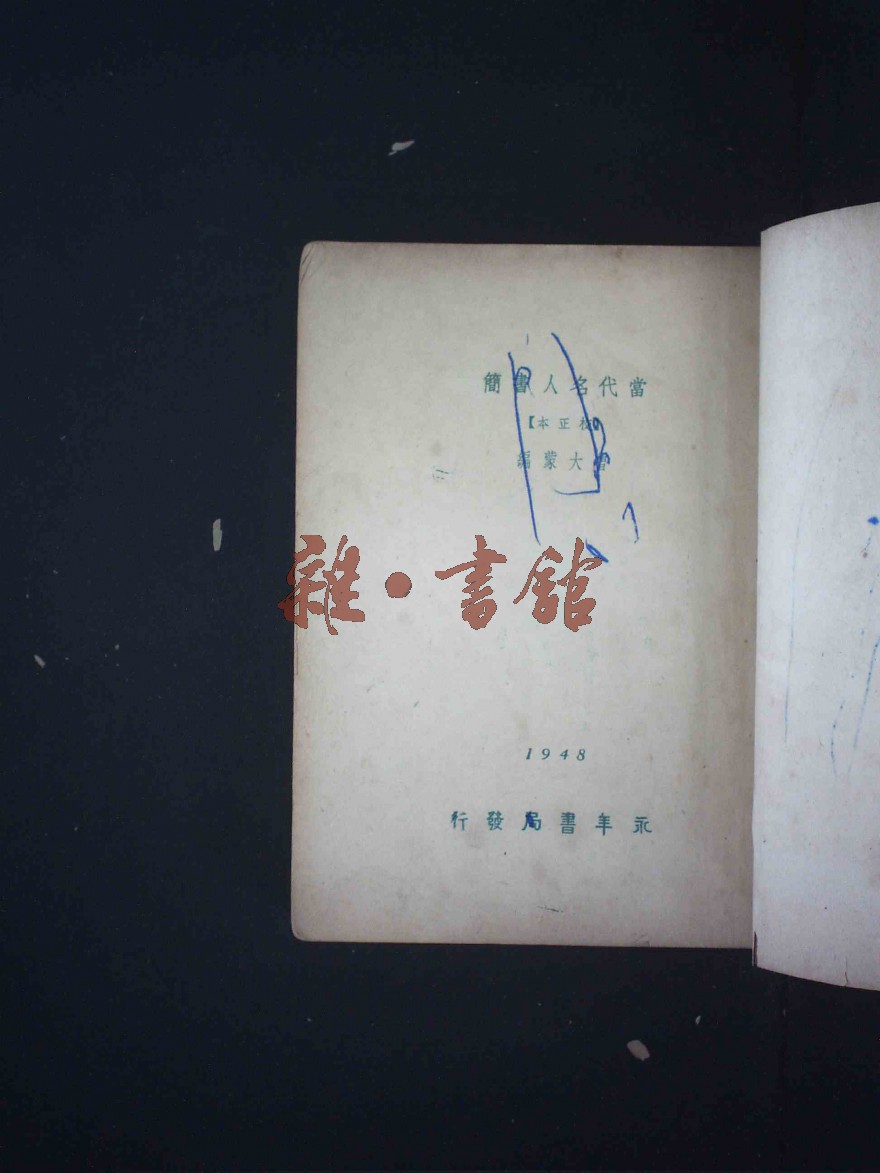 當代名人書簡
【校正本】
曹大蒙編
雜·書館
1948
永年書局發行